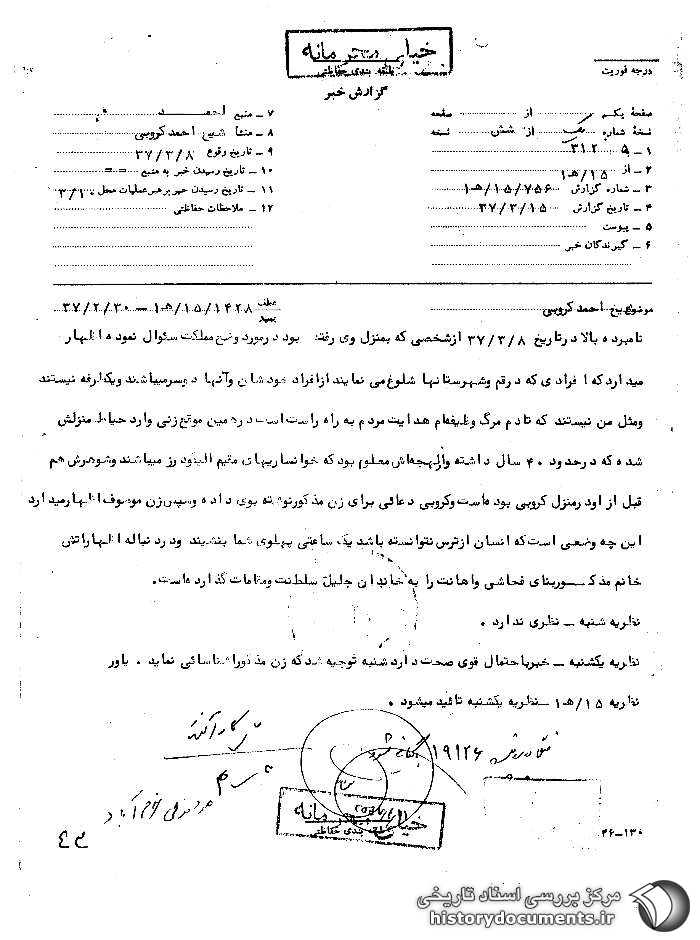 خیلی محرمانه
طبقه بندی حفاظتی
درجه فوریت
گزارش خبر
صفحه یکم از صفحه
نسخهٔ شماره یک از شش نسخه
۱ ـ ۳۱۲
۲ ـ از ۱۵/هـ۱
۳ ـ شماره گزارش ۱۵/۷۵۶/هـ۱
۴ ـ تاریخ گزارش ۳۷/۳/۱۵
۵ ـ پیوست
۶ ـ گیرندگان خبر
۷ ـ منبع احمد
۸ ـ منشأ شیخ احمد کروبی
۹ ـ تاریخ وقوع ۳۷/۳/۸
۱۰ ـ تاریخ رسیدن خبر به منبع = =
۱۱ ـ تاریخ رسیدن خبر برهبر عملیات محل ۳/۱۰
۱۲ ـ ملاحظات حفاظتی
موضوع شیخ احمد کروبی عطف ۱۵/۱۴۲۸/هـ۱ ـ ۳۷/۲/۳۰
نامبرده بالا در تاریخ ۳۷/۳/۸ از شخصی که بمنزل وی رفته بود در مورد وضع مملکت سئوال نموده اظهار
میدارد که افرادی که در قم و شهرستانها شلوغ می نمایند از افراد خودشان و آنها دوسر میباشند و یکطرفه نیستند
و مثل من نیستند که تا دم مرگ وظیفه‌ام هدایت مردم به راه راست است در همین موقع زنی وارد حیاط منزلش
شده که در حدود ۴۰ سال داشته و از لهجه‌اش معلوم بود که خوانساریهای مقیم الیگودرز میباشند و شوهرش هم
قبل از او در منزل کروبی بوده‌است و کروبی دعائی برای زن مذکور نوشته بوی داده و سپس زن موصوف اظهار میدارد
این چه وضعی است که انسان از ترس نتوانسته باشد یک ساعتی پهلوی شما بنشیند و در دنباله اظهاراتش
خانم مذکور بنای فحاشی و اهانت را به خاندان جلیل سلطنت و مقامات گذارده‌است.
نظریه شنبه ـ نظری ندارد .
نظریه یکشنبه ـ خبر باحتمال قوی صحت دارد شنبه توجیه شد که زن مذکور را شناسائی نماید . یاور
نظریه ۱۵/هـ۱ ـ نظریه یکشنبه تائید میشود .
۱۹۱۲۶
خیلی محرمانه
طبقه بندی حفاظتی
۴۶-۱۳۰
مرکز بررسی اسناد تاریخی
historydocuments.ir